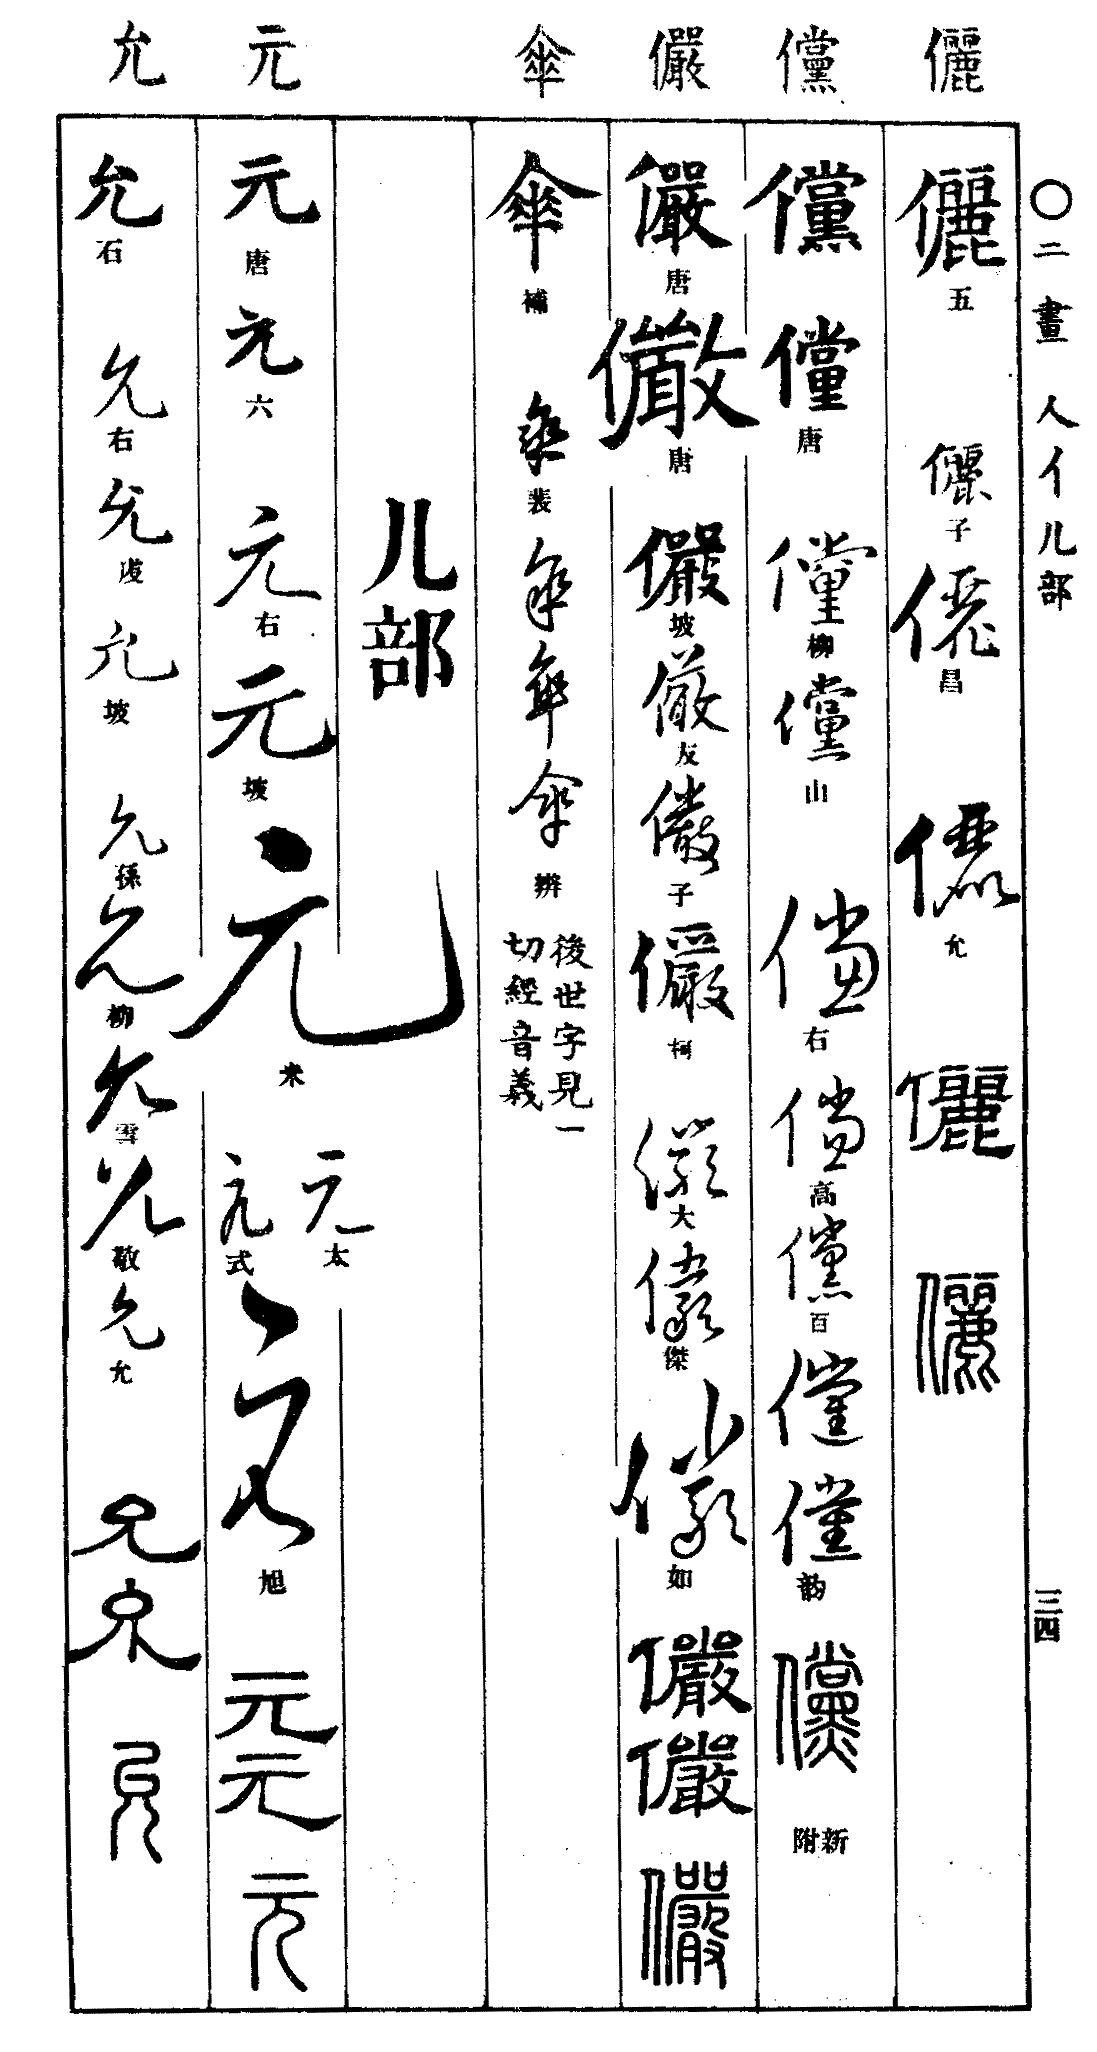 〇二畫 人亻儿部 三四
儷 儷 五 儷 子 儷 昌 儷 允 儷 儷
儻 儻 儻 唐 儻 柳 儻 山 儻 右 儻 高 儻 百 儻 儻 韵 儻 新附
儼 儼 唐 儼 唐 儼 坡 儼 友 儼 子 儼 柯 儼 大 儼 傑 儼 如 儼 儼 儼
傘 傘 補 傘 裴 傘 傘 傘 辨
後世字見一
切經音義
儿部
元 元 唐 元 六 元 右 元 坡 元 米 元 太 元 式 元 旭 元 元 元
允 允 石 允 右 允 允 坡 允 孫 允 柳 允 雪 允 敬 允 允 允 允 允